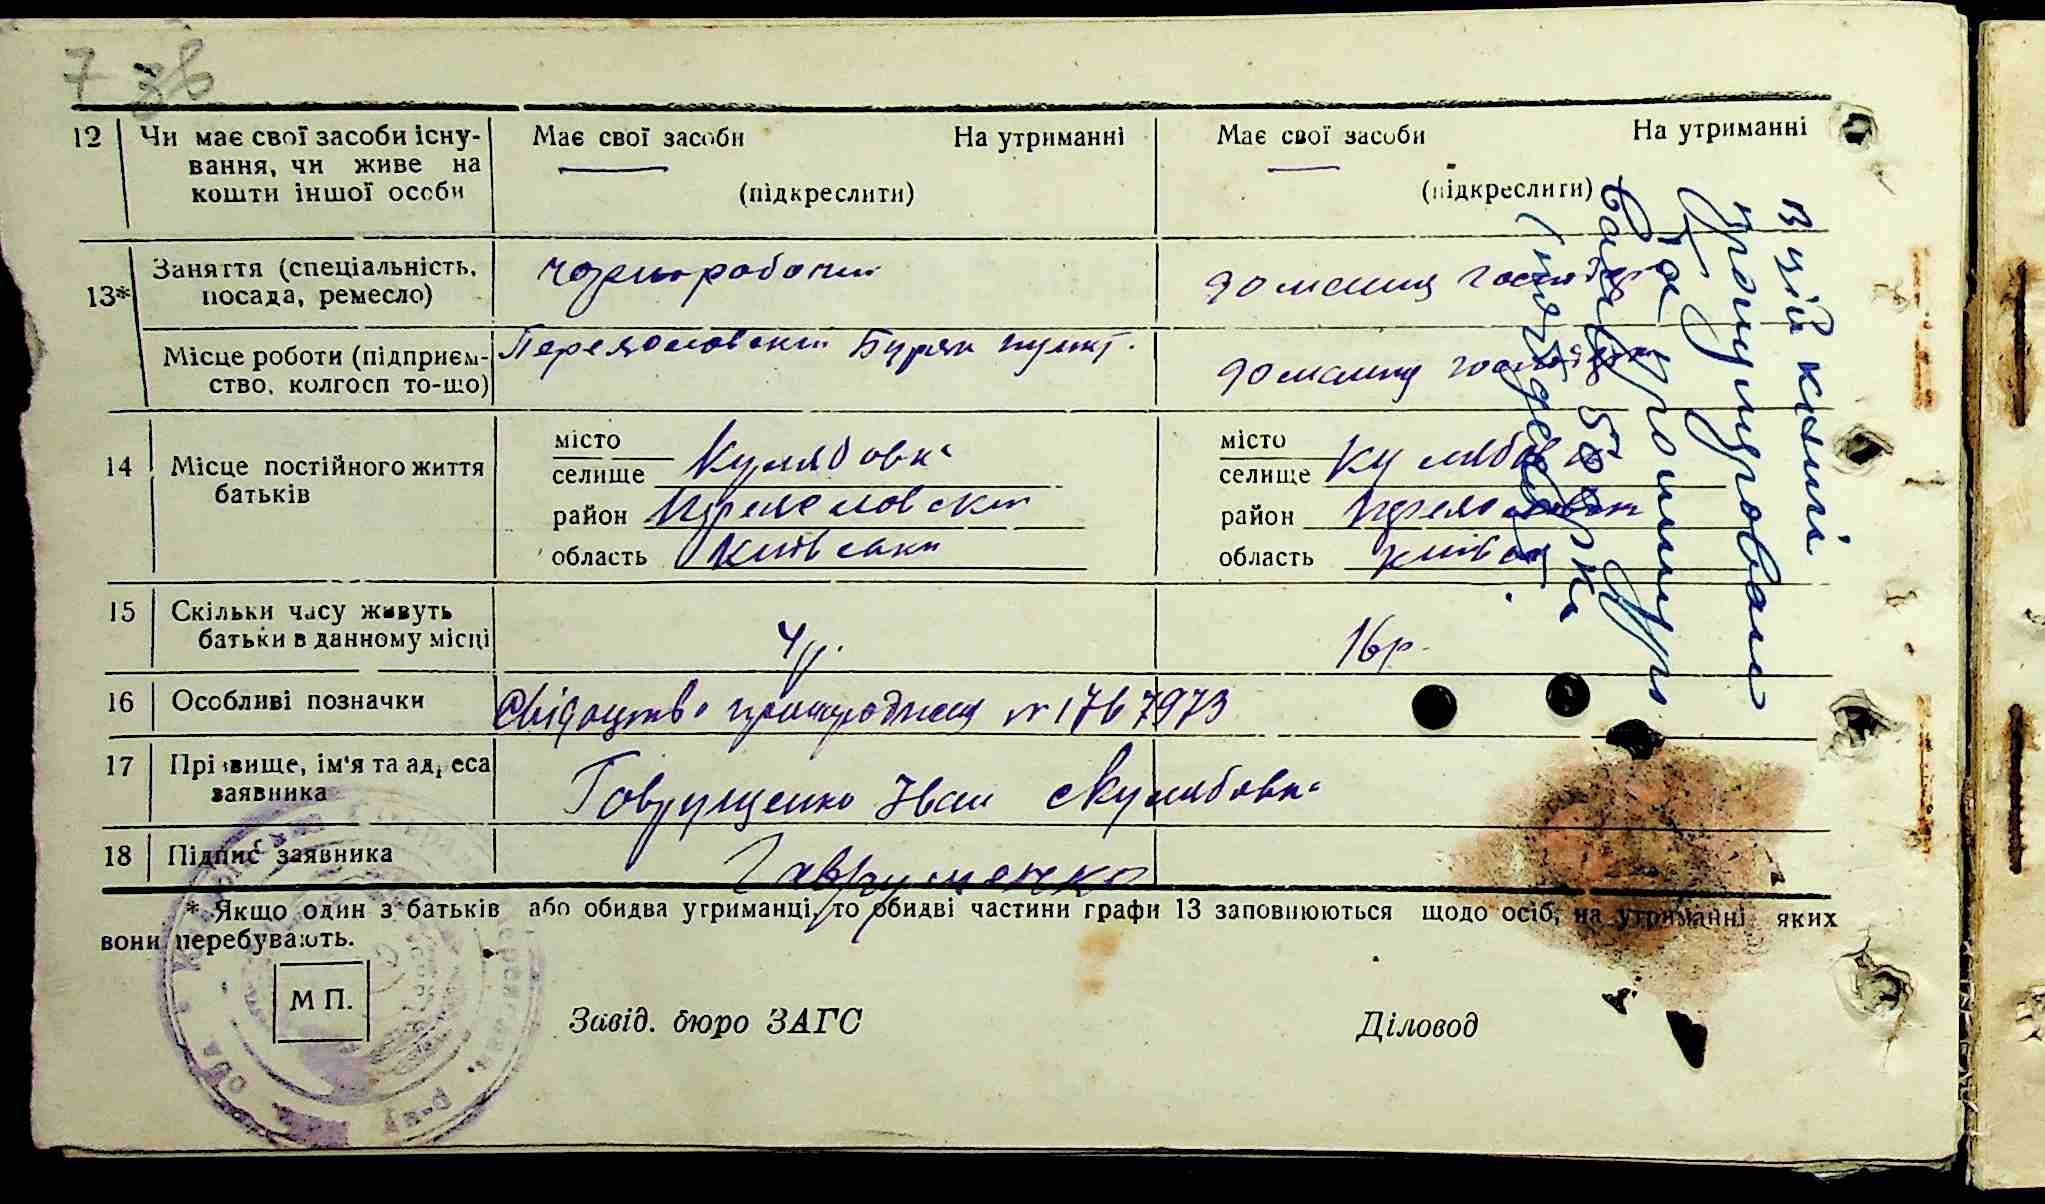 7 зв
12 Чи має свої засоби існу- Має свої засоби На утриманні Має свої засоби На утриманні
вання, чи живе на
кошти іншої особи (підкреслити) (підкреслити)
13* Заняття (спеціальність, чорноробочий домашня господарка
посада, ремесло)
Місце роботи (підприєм- Переяславський Буряк пункт. домашня господарка
ство, колгосп то-що)
14 Місце постійного життя місто Кулябовка місто Кулябовка
батьків селище селище
район Переяславський район Переяславський
область Київська область Київськ
15 Скільки часу живуть 4р. 16р.
батьки в данному місці
16 Особливі позначки Свідоцтво №1767973
17 Прізвище, ім'я та адреса Гаврущенко Іван с Кулябовка
заявника
18 Підпис заявника Гаврущенко
* Якщо один з батьків або обидва утриманці, то обидві частини графи 13 заповнюються щодо осіб, на утриманні яких
вони перебувають.
М П. Завід. бюро ЗАГС Діловод
В цій книзі
пронумеровано
та прошнуро
вано 50 арк.
(п'ятдесят).